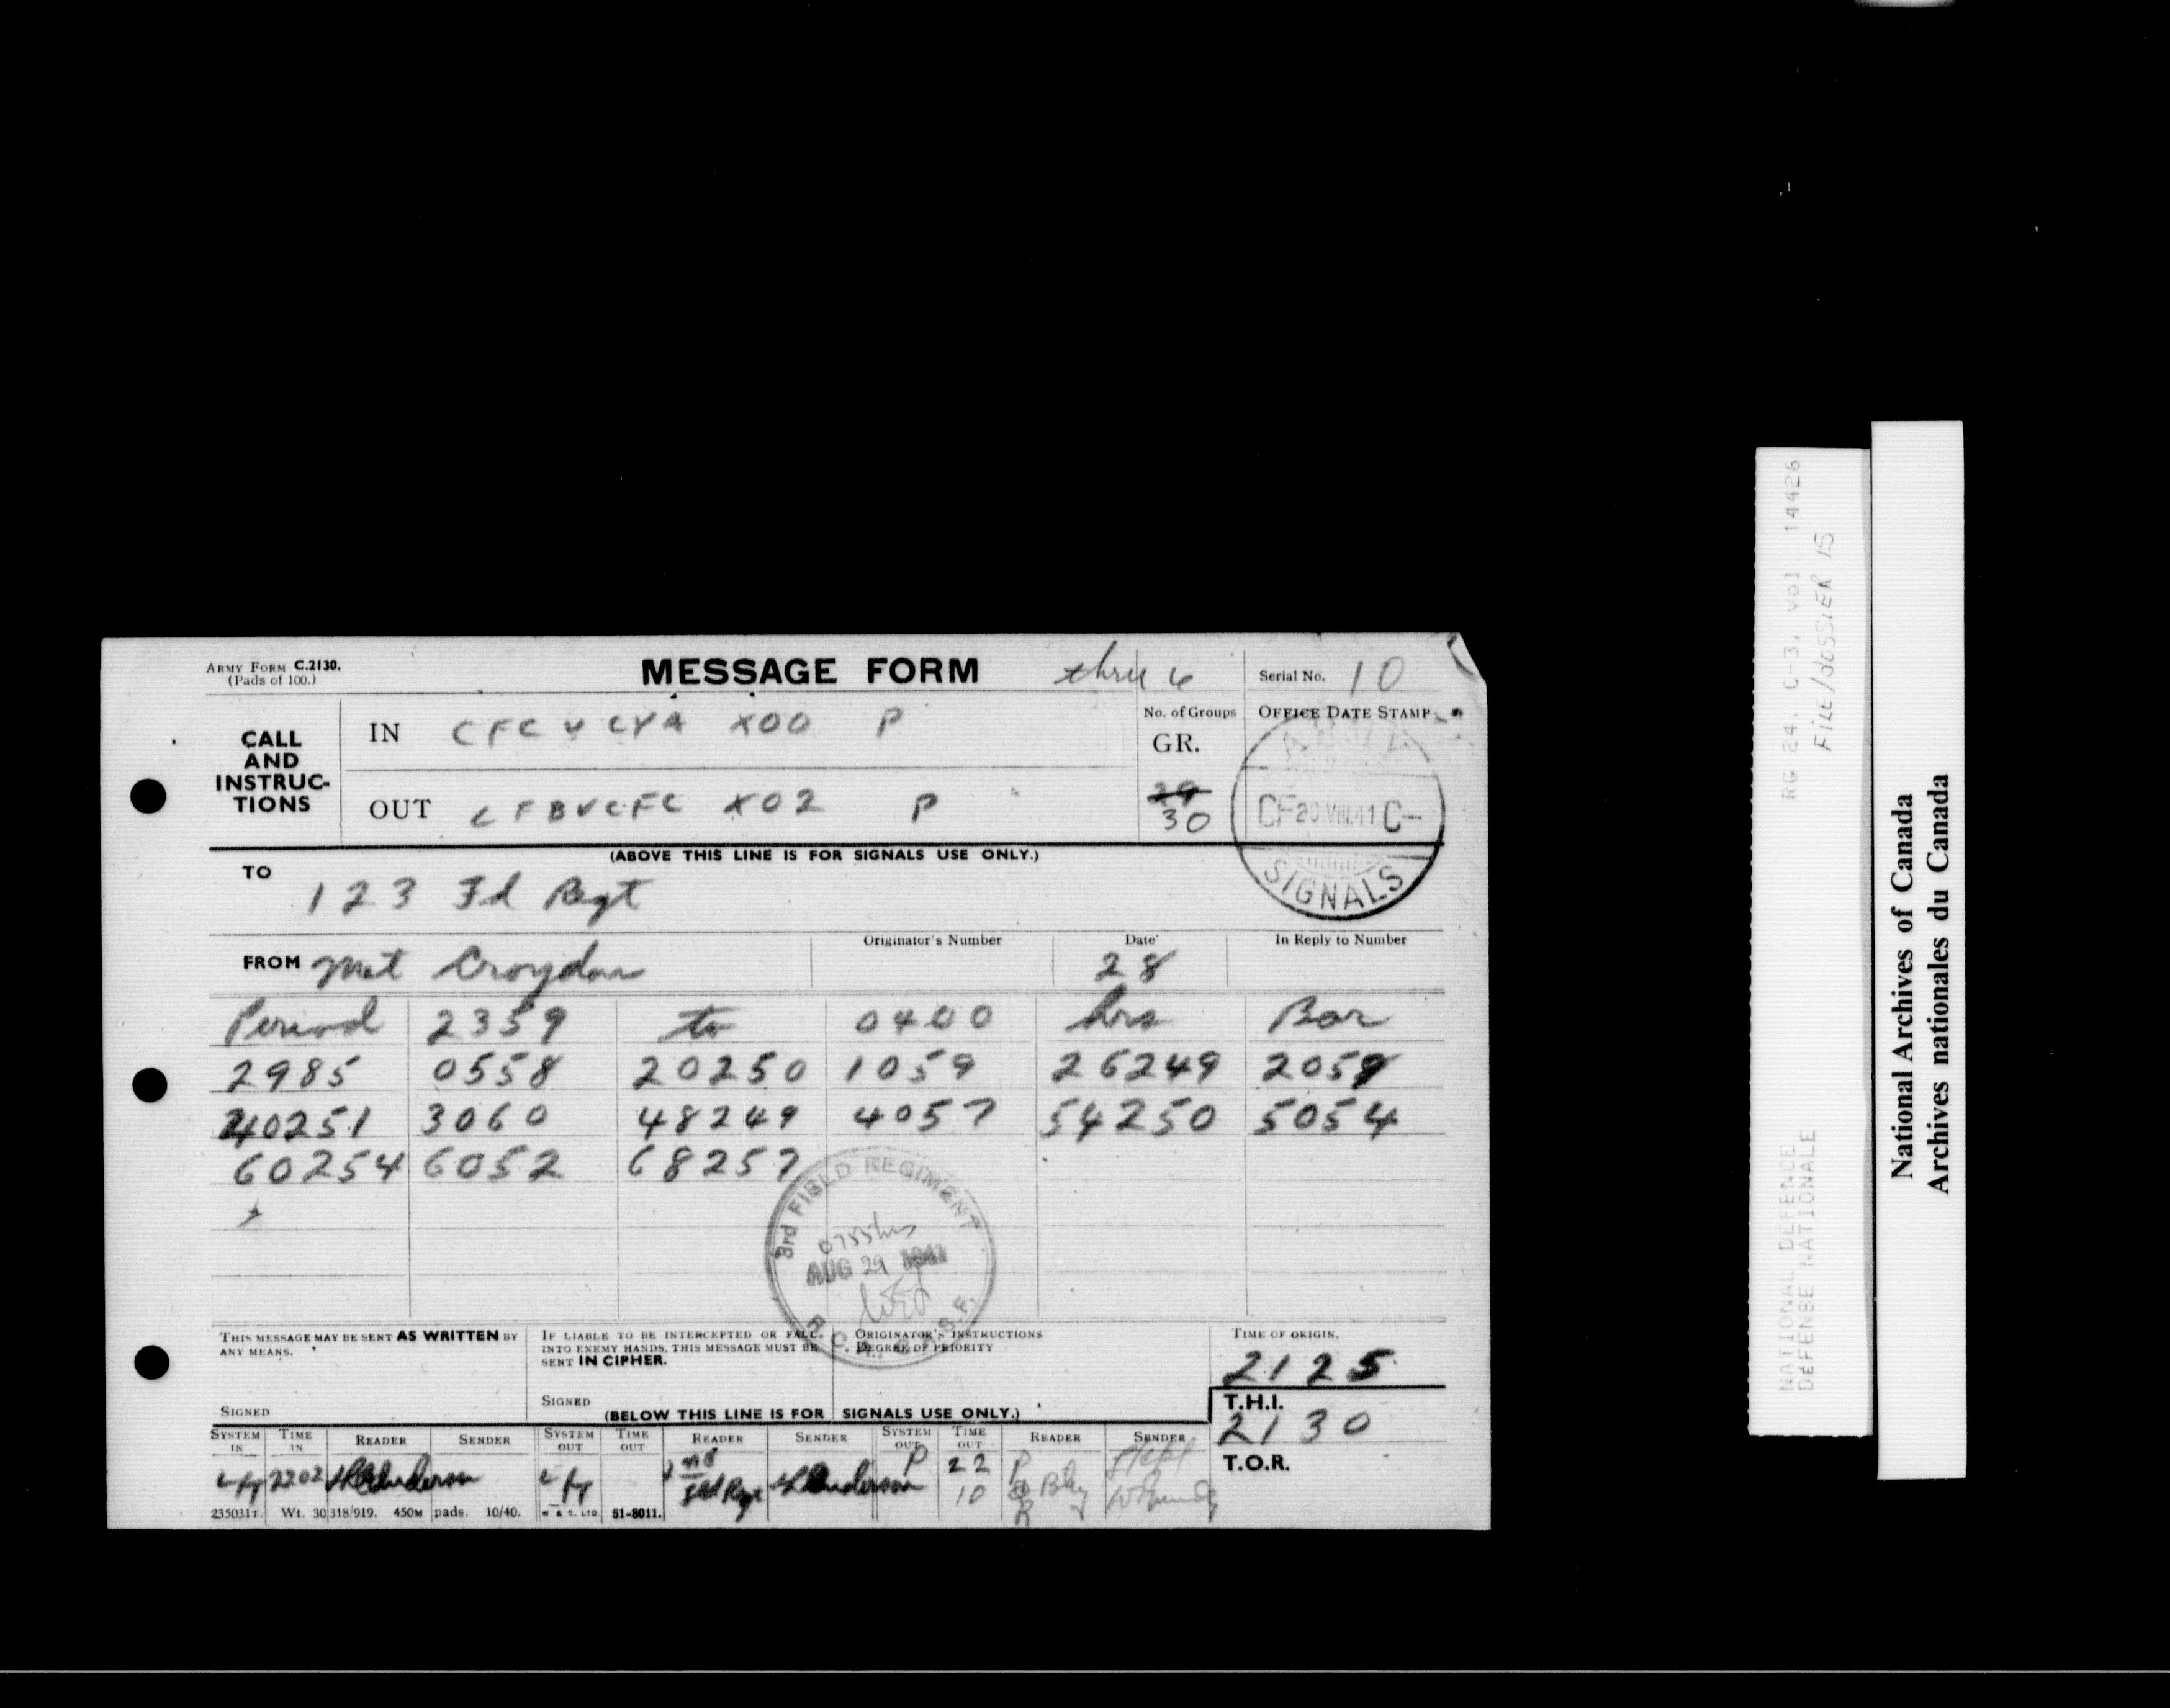 ARMY FORM C.2130.
(Pads of 100.)
MESSAGE FORM
thru 6
Serial No. 10
CALL AND INSTRUC-TIONS
IN CFC V CYA X00 P
No. of Groups
GR.
OFFICE DATE STAMP
OUT CFBVCFC X02 P
29
30
CF 29 VIII.41 C-
SIGNALS
(ABOVE THIS LINE IS FOR SIGNALS USE ONLY.)
TO
1 2 3 Fd Regt
FROM Met Croydon
Originator's Number
Date
28
In Reply to Number
Period 2359 to 0400 hrs Bar
2985 0558 20250 1059 26249 2059
40251 3060 48249 4057 54250 5054
60254 6052 68257
3rd FIELD REGIMENT
0755 hrs
AUG 29 1941
R.C.A., C.A.S.F.
THIS MESSAGE MAY BE SENT AS WRITTEN BY ANY MEANS.
SIGNED
IF LIABLE TO BE INTERCEPTED OR FALL INTO ENEMY HANDS, THIS MESSAGE MUST BE SENT IN CIPHER.
SIGNED
ORIGINATOR'S INSTRUCTIONS
DEGREE OF PRIORITY
TIME OF ORIGIN.
2125
T.H.I.
2130
T.O.R.
(BELOW THIS LINE IS FOR SIGNALS USE ONLY.)
SYSTEM IN TIME IN READER SENDER SYSTEM OUT TIME OUT READER SENDER SYSTEM OUT TIME OUT READER SENDER
2202 Fld Regt P 22 10 P Bty
235031T. Wt. 30318/919. 450M pads. 10/40. W & S. LTD. 51-8011.
RG 24, C-3, vol 14426
FILE/DOSSIER 15
NATIONAL DEFENCE
DEFENSE NATIONALE
National Archives of Canada
Archives nationales du Canada